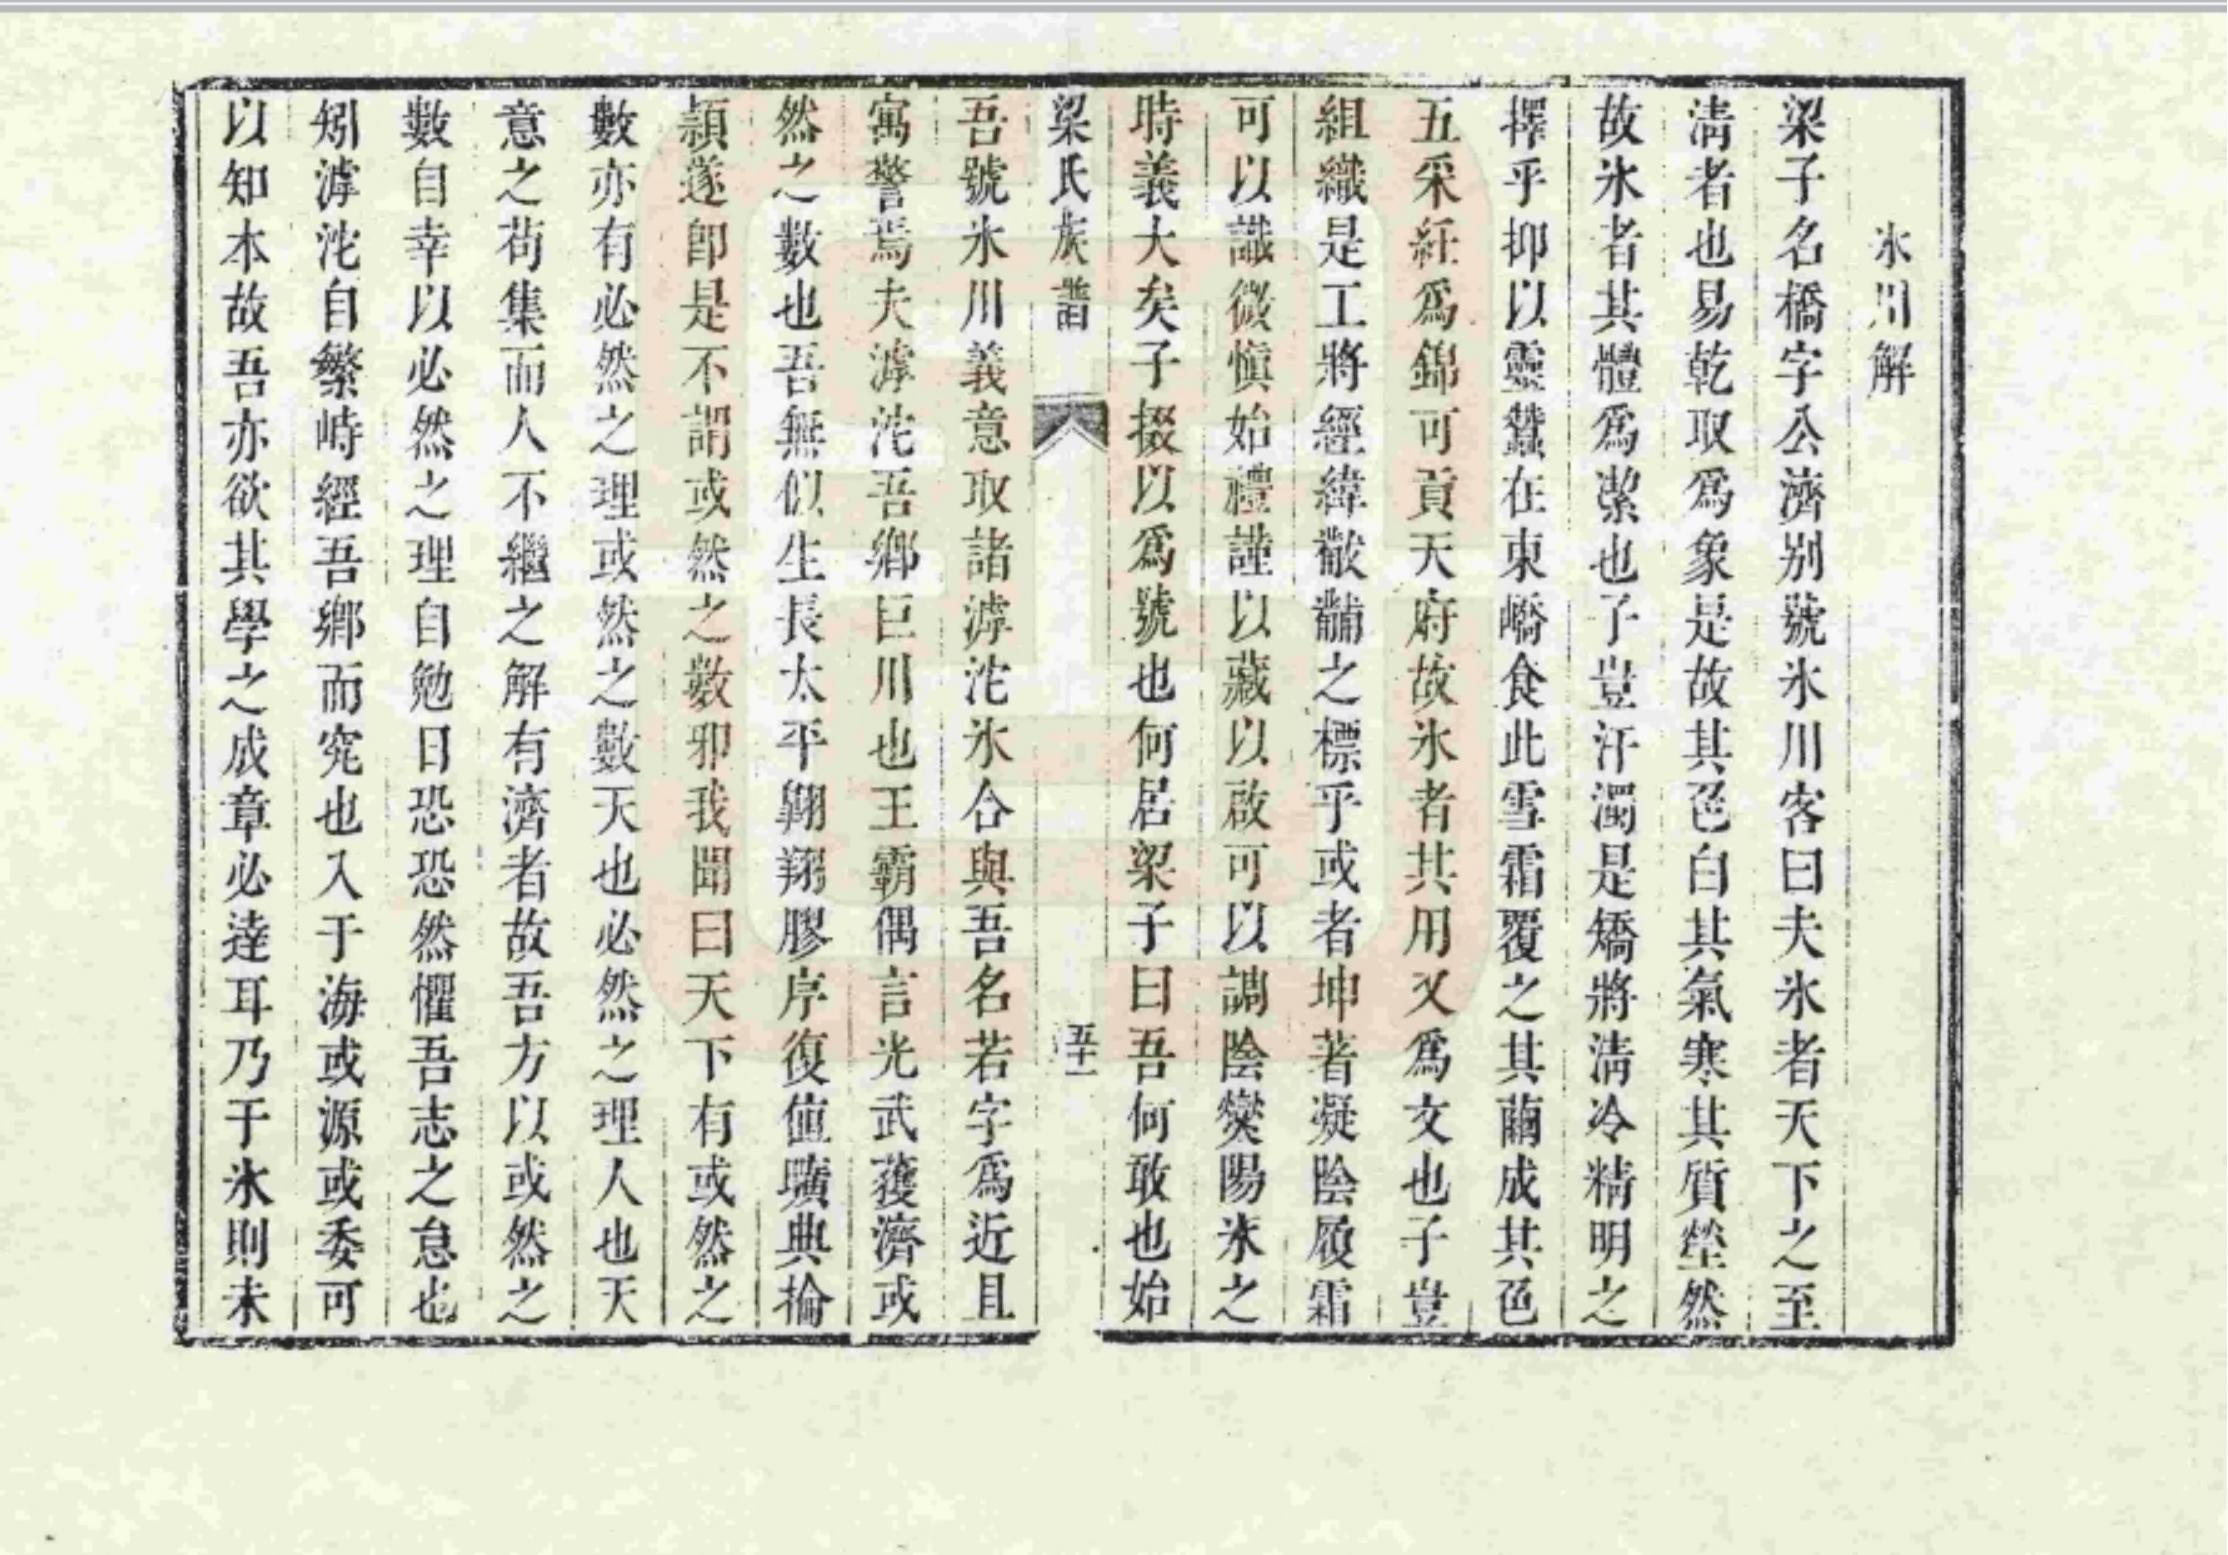 氷川解
梁子名橋字公濟别號氷川客曰夫氷者天下之至
淸者也易乾取爲象是故其色白其氣寒其質瑩然
故氷者其體爲潔也子豈汙濁是矯將淸冷精明之
擇乎抑以靈蠶在東嶠食此雪霜覆之其繭成其色
五采紝爲錦可貢天府故氷者共用又爲文也子豈
組織是工將經緯黻黼之標乎或者坤著凝陰履霜
可以識微愼始禮謹以藏以啟可以調陰爕陽氷之
時義大矣子掇以爲號也何居梁子曰吾何敢也始
梁氏族譜
五十一
吾號氷川義意取諸滹沱氷合與吾名若字爲近且
寓警焉夫滹沱吾鄉巨川也王霸偶言光武蒦濟或
然之數也吾無似生長太平翺翔膠序復値曠典掄
頴遂卽是不謂或然之數邪我聞曰天下有或然之
數亦有必然之理或然之數天也必然之理人也天
意之茍集而人不繼之解有濟者故吾方以或然之
數自幸以必然之理自勉日恐恐然懼吾志之怠也
矧滹沱自繁峙經吾鄉而究也入于海或源或委可
以知本故吾亦欲其學之成章必逹耳乃于氷則未